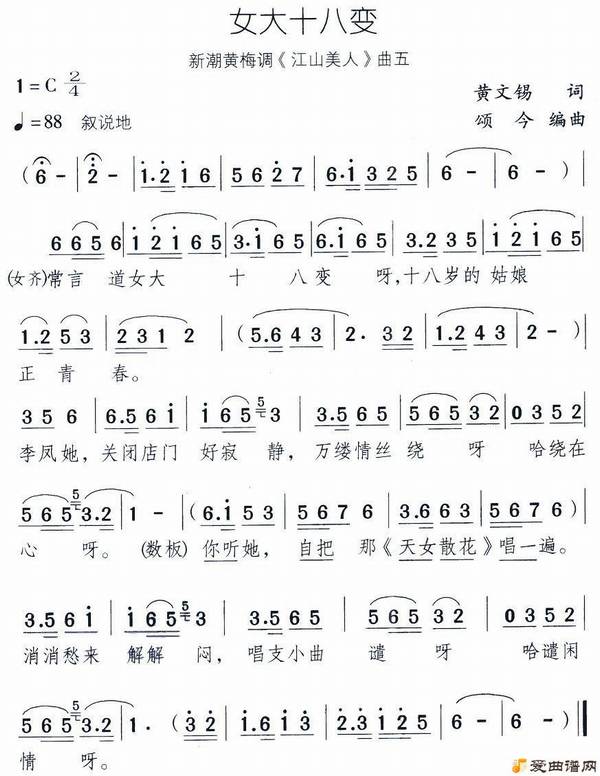 女大十八变
新潮黄梅调《江山美人》曲五
1=C 2/4
黄文锡 词
♩=88 叙说地
颂今 编曲
(6 - | 2 - | 1·2 1 6 | 5 6 2 7 | 6·1 3 2 5 | 6 - | 6 -)
6 6 5 6 | 1 2 1 6 5 | 3·1 6 5 | 6·1 6 5 | 3.2 3 5 | 5 6 5 6 5
(女齐)常言 道女大 十 八变 呀,十八岁的 姑娘
1.2 5 3 | 2 3 1 2 | (5.6 4 3 | 2· 2 3 | 1.2 4 3 | 2 -)
正青春。
3 5 6 | 6.5 6 1 | 1 6 5 | 3.5 6 5 | 5 6 5 3 2 | 0 3 5 2
李凤她,关闭店门 好寂 静,万缕情丝 绕 呀 哈绕在
5 6 5 3.2 | 1 - | (6.1 5 3 | 5 6 7 6 | 3.6 6 3 | 5 6 7 6)
心 呀。 (数板)你听她,自把 那《天女散花》唱一遍。
3.5 6 1 | 1 6 5 | 3.5 6 5 | 5 6 5 3 2 | 0 3 5 2
消消愁来 解解 闷,唱支小曲 谴 呀 哈谴闲
5 6 5 3.2 | 1· (2 3 5 | 2·1 6 1 5 6 | 3·2 1 2 3 5 | 6 - | 6 -)
情 呀。
爱曲谱网